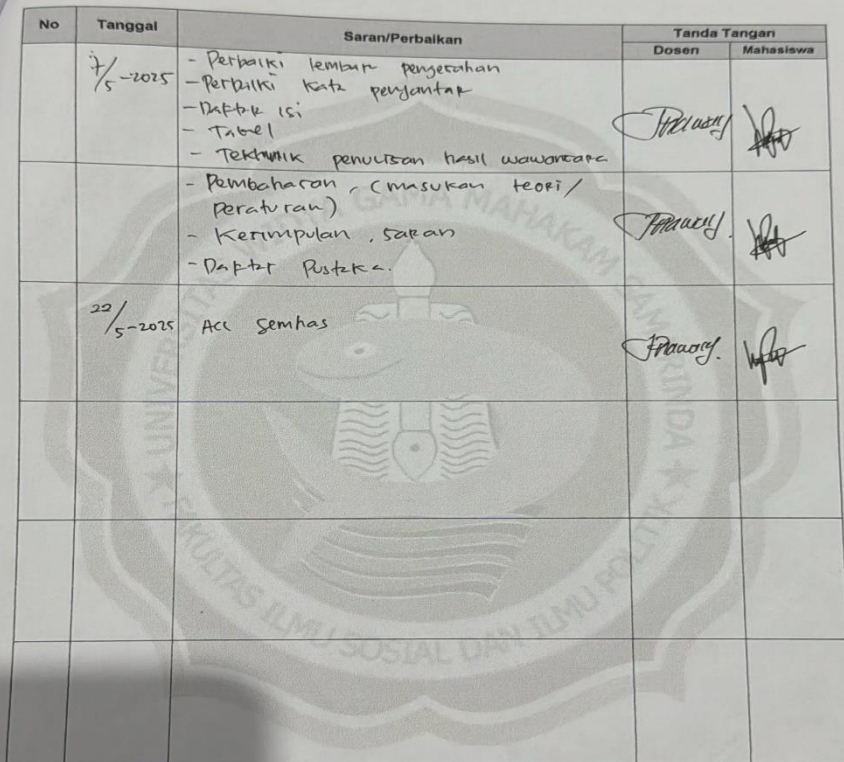 No Tanggal Saran/Perbaikan Tanda Tangan
Dosen Mahasiswa
7/5-2025
- Perbaiki lembar pengesahan
- Perbaiki Kata pengantar
- Daftar isi
- Tabel
- Tekhnik penulisan hasil wawancara
- Pembahasan, (masukan teori/
peraturan)
- Kesimpulan, saran
- Daftar Pustaka.
22/5-2025 Acc semhas
UNIVERSITAS GAMA MAHAKAM SAMARINDA
FAKULTAS ILMU SOSIAL DAN ILMU POLITIK